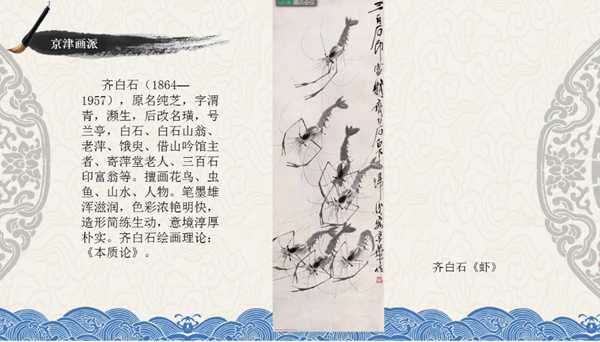 京津画派
齐白石（1864—
1957），原名纯芝，字渭
青，濒生，后改名璜，号
兰亭，白石、白石山翁、
老萍、饿叟、借山吟馆主
者、寄萍堂老人、三百石
印富翁等。擅画花鸟、虫
鱼、山水、人物。笔墨雄
浑滋润，色彩浓艳明快，
造形简练生动，意境淳厚
朴实。齐白石绘画理论：
《本质论》。
三百石印富翁齐白石
齐白石《虾》